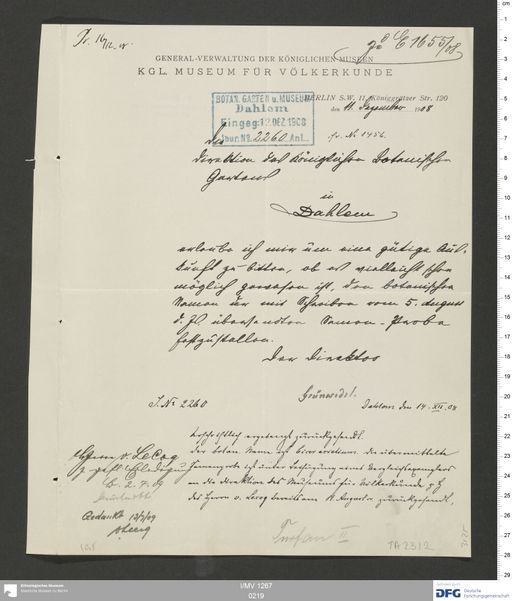 Pr. 16/12. 08.
zu E 1655/08
GENERAL-VERWALTUNG DER KÖNIGLICHEN MUSEEN
KGL. MUSEUM FÜR VÖLKERKUNDE
BERLIN S.W. 11, Königgrätzer Str. 120
den 11. Dezember 1908
BOTAN. GARTEN u. MUSEUM
Dahlem
Eingeg: 12. DEZ. 1908
Jour. No. 2260 Anl.
J. No. 1456.
Die
Direktion des Königlichen Botanischen
Gartens
in
Dahlem
erlaube ich mir um eine gütige Aus-
kunft zu bitten, ob es vielleicht schon
möglich gewesen ist, den botanischen
Namen der mit Schreiben vom 5. August
d. Js. übersandten Samen-Probe
festzustellen.
Der Direktor
Grünwedel.
J. No 2260
Dahlem den 14. XII. 08
ergebenst zurückgesandt.
Der botan. Name
an die Direktion des Museums für Völkerkunde z. H.
des Herrn v. Lecoq bereits am August zurückgesandt.
Herrn v. Lecoq
B. 2. 7. 09
Gedankt 12/7/09
v Lecoq
Turfan II
TA 2312
Ethnologisches Museum
Staatliche Museen zu Berlin
I/MV 1267
0219
DFG
Deutsche
Forschungsgemeinschaft